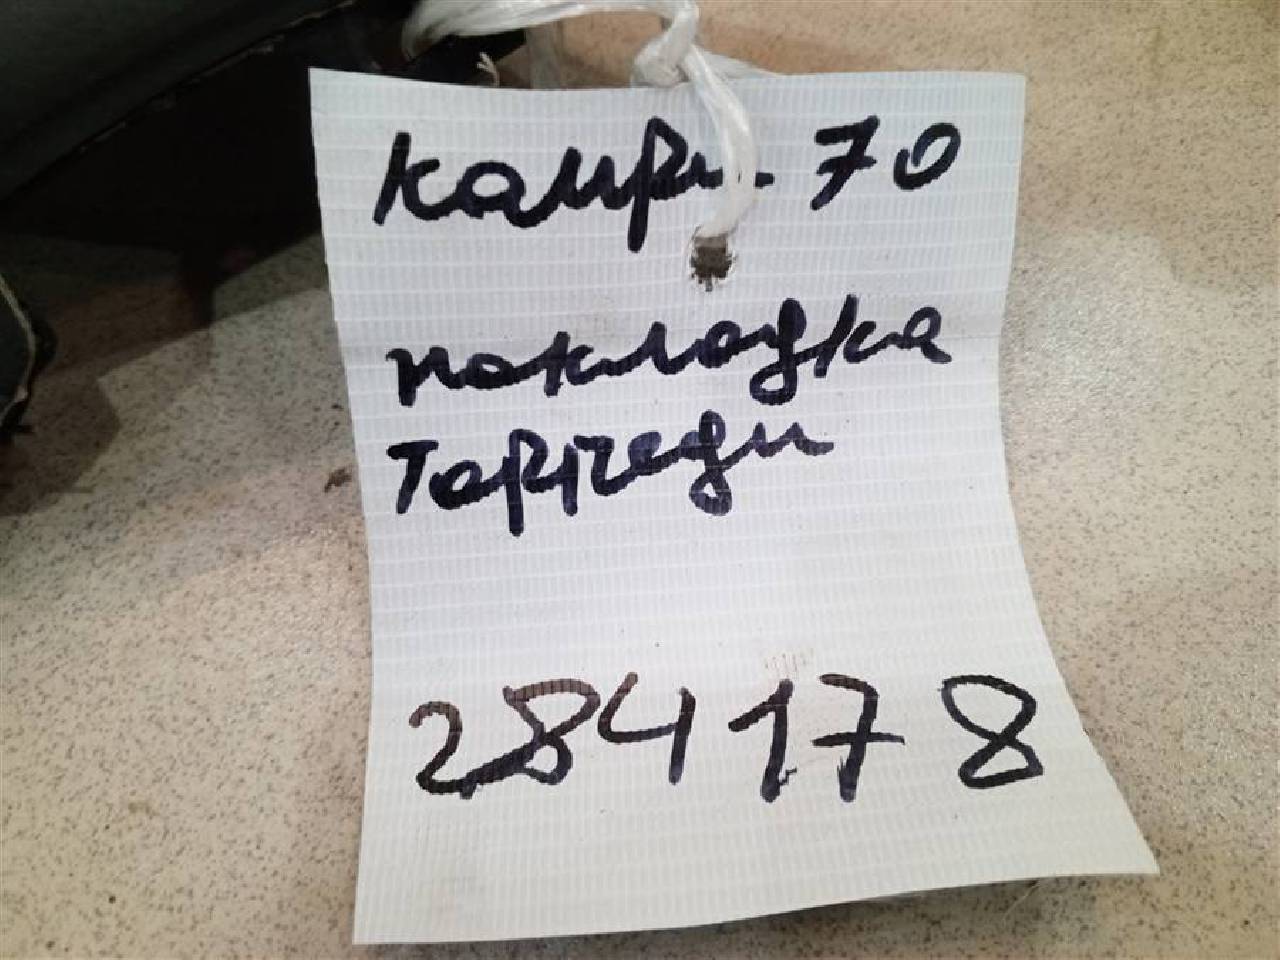 Камри 70
накладка
Торпеди
284178